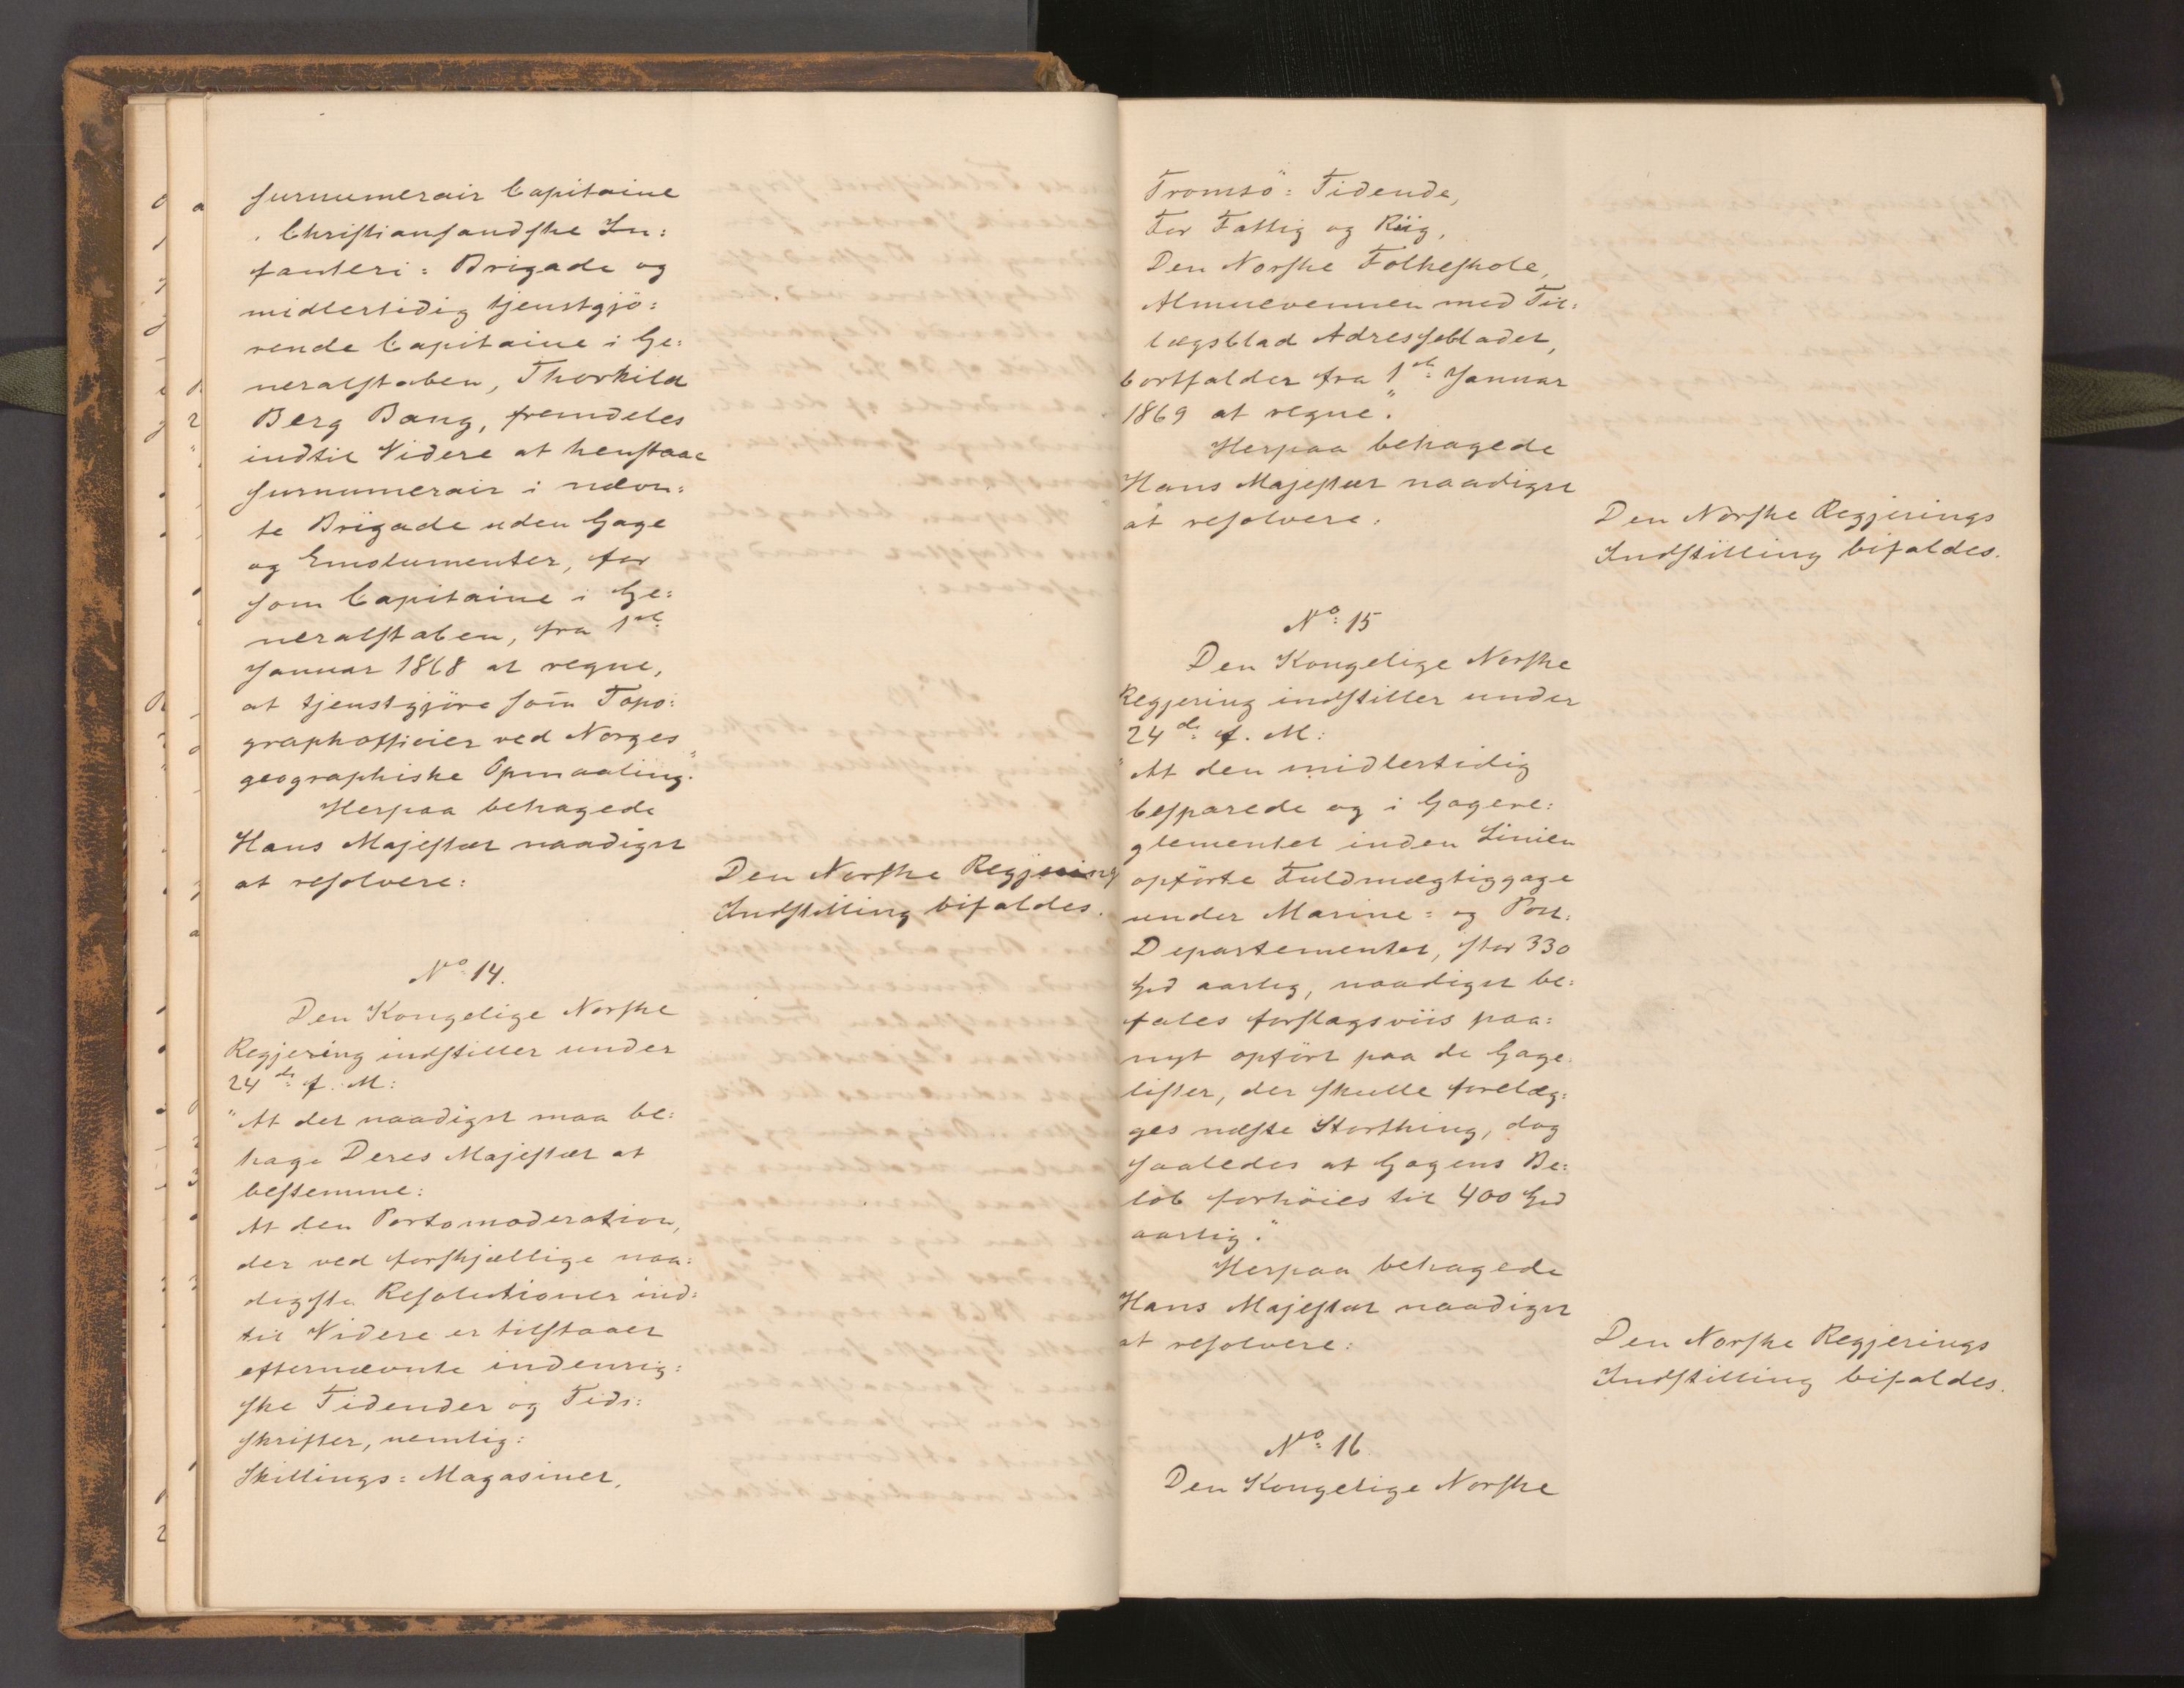 surnumerair Capitaine
i Christiansandske In:
fanteri: Brigade og
midlertidig tjenstgjö:
rende Capitaine i Ge:
neralstaben, Thorkild
Berg Bang, fremdeles
indtil Videre at henstaae
surnumerair i nævn:
te Brigade uden Gage
og Emolumenter, for
som Capitaine i Ge:
neralstaben, fra 1ste
Januar 1868 at regne,
at tjenstgjöre som Topo:
graphofficier ved Norges
geographiske Opmaaling."
Herpaa behagede
Hans Majestæt naadigst
at resolvere:
Den Norske Regjerings
Indstilling bifaldes.
No: 14.
Den Kongelige Norske
Regjering indstiller under
24de f. M:
"At det naadigst maa be:
hage Deres Majestæt at
bestemme:
At den Portomoderation,
der ved forskjællige naa:
digste Resolutioner ind:
til Videre er tilstaaet
efternævnte indenrig:
ske Tidender og Tids:
skrifter, nemlig:
Skillings: Magasinet,
Tromsö: Tidende,
For Fattig og Riig,
Den Norske Folkeskole,
Almuevennen med Til:
lægsblad Adressebladet,
bortfalder fra 1ste Januar
1869 at regne".
Herpaa behagede
Hans Majestæt naadigst
at resolvere:
Den Norske Regjerings
Indstilling bifaldes.
No: 15
Den Kongelige Norske
Regjering indstiller under
24de f. M:
"At den midlertidig
besparede og i Gagere:
glementet inden Linien
opförte Fuldmægtiggage
under Marine: og Post:
Departementet, stor 330
Spd aarlig, naadigst be:
fales forslagsviis paa:
nyt opfört paa de Gage:
lister, der skulle forelæg:
ges næste Storthing, dog
saaledes at Gagens Be:
löb forhöies til 400 Spd
aarlig".
Herpaa behagede
Hans Majestæt naadigst
at resolvere:
Den Norske Regjerings
Indstilling bifaldes.
No: 16.
Den Kongelige Norske